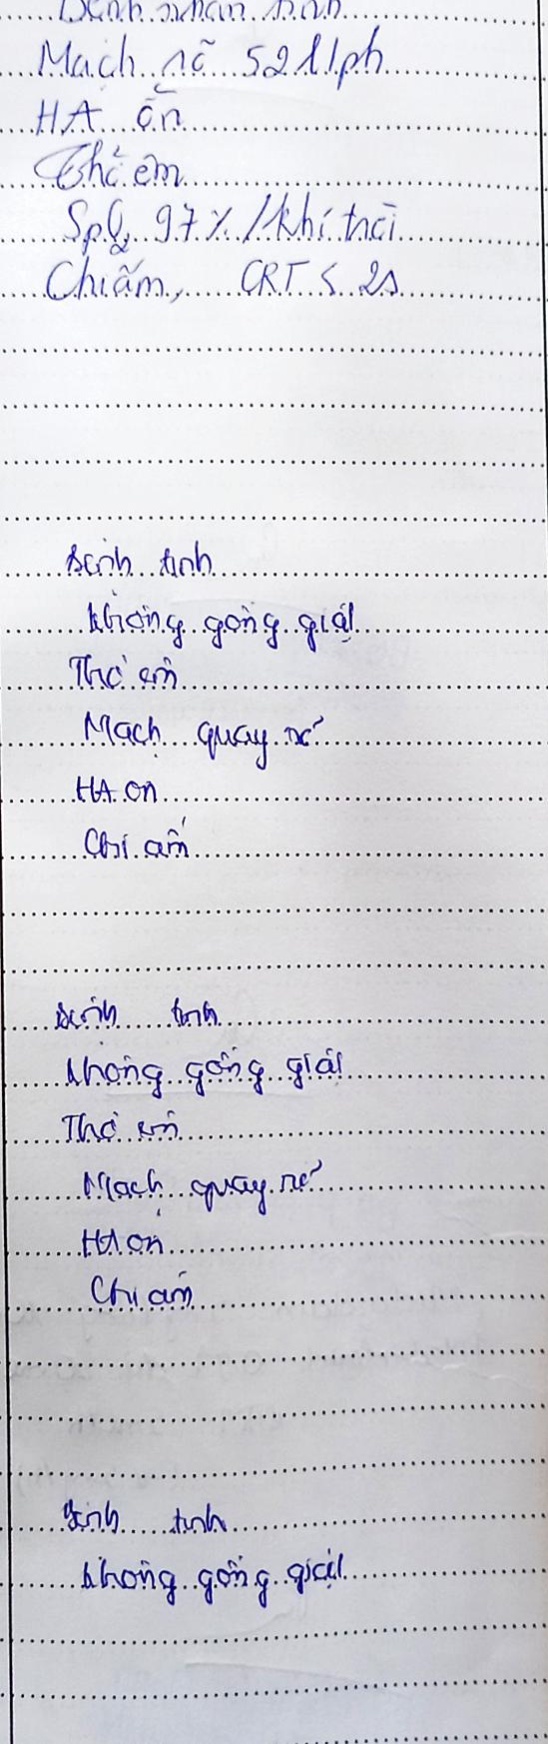 Bệnh nhân tỉnh
Mạch rõ 52 l/ph
HA ổn
Thở êm
SpO2 97% /khí trời
Chi ấm, CRT < 2s
Bệnh tỉnh
không gồng giật
Thở êm
Mạch quay rõ
HA ổn
Chi ấm
Bệnh tỉnh
không gồng giật
Thở êm
Mạch quay rõ
HA ổn
Chi ấm
Bệnh tỉnh
không gồng giật